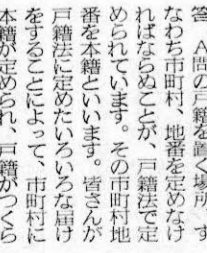 答　A問の戸籍を置く場所、す
なわち市町村、地番を定めなけ
ればならぬことが、戸籍法で定
められています。その市町村地
番を本籍といいます。皆さんが
戸籍法に定めたいろいろな届け
をすることによって、市町村に
本籍が定められ、戸籍がつくら